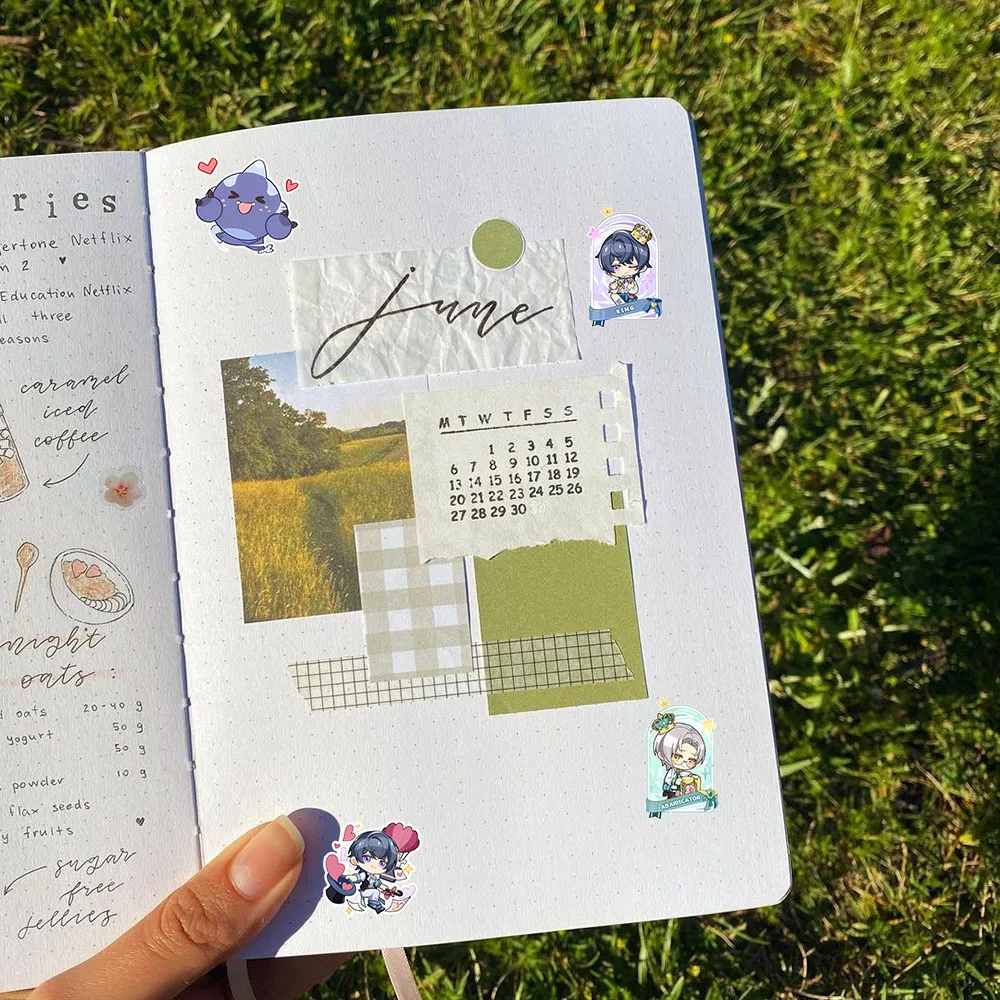 ries
gertone Netflix
n 2 ♥
Education Netflix
ll three
easons
caramel
iced
coffee
night
oats
oats 20-40 g
yogurt 50 g
50 g
powder 10 g
flax seeds
y fruits ♥
sugar
free
jellies
june
M T W T F S S
1 2 3 4 5
6 7 8 9 10 11 12
13 14 15 16 17 18 19
20 21 22 23 24 25 26
27 28 29 30
KING
ADJUDICATOR